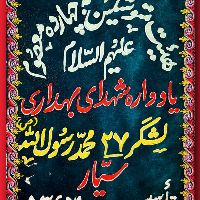 هیئت متوسلین چهارده معصوم
علیهم السلام
یادواره شهدای بهداری
لشگر ۲۷ محمد رسول الله
سیّار